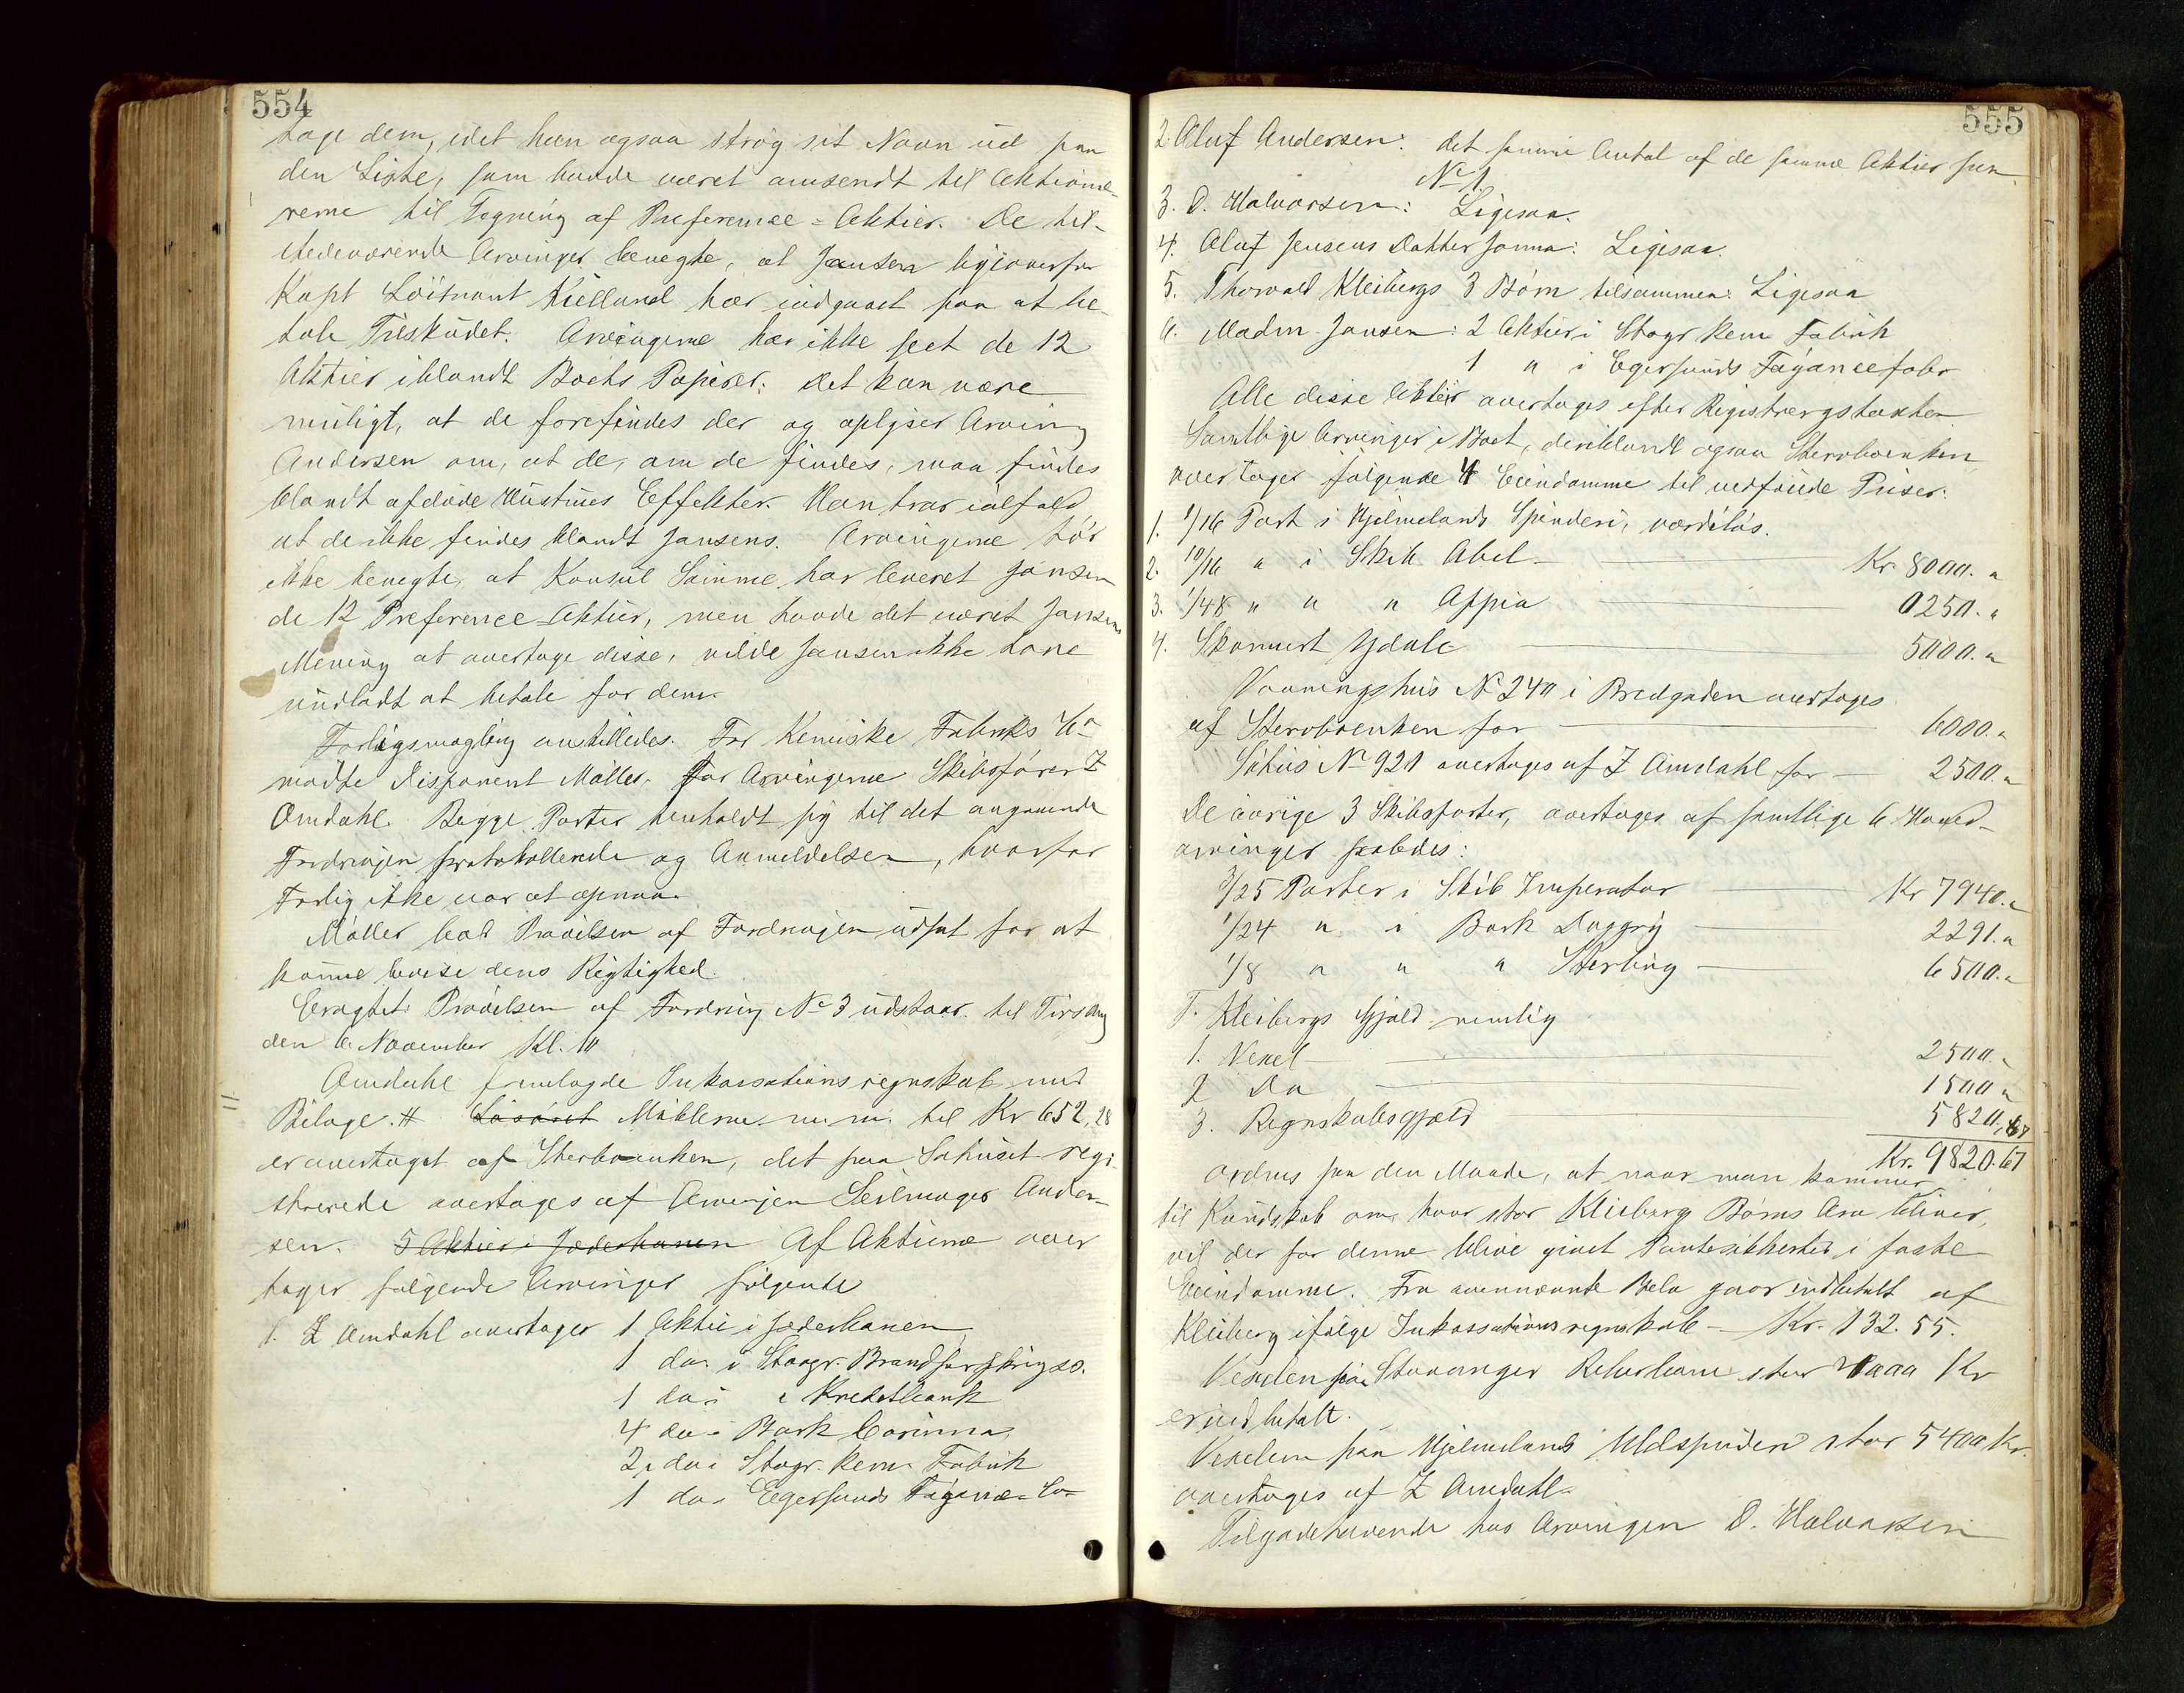 554
tage dem, idet han ogsaa strøg sit Navn ud paa
den Liste, som havde været omsendt til Aktionæ-
rerne til Tegning af Preference-Aktier. De til-
stedeværende Arvinger benegte, at Jansen ligeoverfor
Kapt Løitnant Kielland har indgaaet paa at be-
tale Tilskudet. Arvingerne har ikke seet de 12
Aktier iblandt Boets Papirer. Det kan være
muligt, at de forefindes der og oplyser Arving
Andersen om, at de, om de findes, maa findes
blandt afdøde Hustrues Effekter. Han tror ialfald
at de ikke findes blandt Jansens. Arvingerne tør
ikke benegte, at Konsul Sømme har leveret Jansen
de 12 Preference-Aktier, men havde det været Jansens
Mening at overtage disse, vilde Jansen ikke have
undladt at betale for dem.
Forligsmægling anstilledes. For Kemiske Fabriks Co
mødte Disponent Møller, for Arvingerne Skibsfører Z
Amdahl. Begge Parter henholdt sig til det angaaende
Fordringen protokollerede og Anmeldelsen, hvorfor
Forlig ikke var at opnaa.
Møller bad Prøvelsen af Fordringen udsat for at
kunne bevise dens Rigtighed.
Eragtet: Prøvelsen af Fordring No 3 udstaar til Tirsdag
den 6. November Kl. 10
Amdahl fremlagde Inkassationsregnskab med
Bilage. # Løsøret Møblerne m. m. til Kr 652,28
er overtaget af Sterboenken, det paa Søhuset regi-
strerede overtages af Arvingen Seilmager Ander-
sen. 5 Aktier i Jæderbanen Af Aktierne over
tager følgende Arvinger følgende
1. Z Amdahl overtager 1 Aktie i Jæderbanen
1 do. i Stavgr. Brandforsikringss.
1 do i Kreditbank
4 do i Bark Corinna
2 do i Stavgr. kem. Fabrik
1 do i Egersunds Fayance-Co
555
2. Aluf Andersen: det samme Antal af de samme Aktier som
No 1.
3. O. Halvorsen: Ligesaa.
4. Aluf Jensens Datter Janna: Ligesaa.
5. Thorvald Kleibergs 3 Børn tilsammen: Ligesaa
6. Madm Jansen: 2 Aktier i Stavgr kem Fabrik
1 " i Egersunds Fayancefabr
Alle disse Aktier overtages efter Registreringstaxten
Samtlige Arvinger i Boet, deriblandt ogsaa Sterboenken
overtager følgende 4 Eiendomme til vedføiede Priser.
1. 1/16 Part i Hjelmelands Spinderi, værdiløs.
2. 10/16 " i Skib Abel Kr. 8000. "
3. 1/48 " " " Appia 0250. "
4. Skonnert Ydale 5000. "
Vaaningshus No 240 i Bredgaden overtages
af Sterboenken for 6000. "
Søhus No 921 overtages af Z Amdahl for 2500. "
De øvrige 3 Skibsparter, overtages af samtlige 6 Hoved-
arvinger saaledes:
3/25 Parter i Skib Imperator Kr 7940. "
1/24 " i Bark Daggry 2291. "
1/8 " " " Sterling 6500. "
T. Kleibergs Gjæld nemlig
1. Vexel 2500. "
2 Do 1500 "
3. Regnskabsgjæld 5820,67
Kr. 9820.67
ordnes paa den Maade, at naar man kommer
til Kundskab om, hvor stor Kleibergs Børns Arv bliver,
vil der for denne blive givet Pantesikkerhed i faste
Eiendomme. Fra ovennævnte Beløb gaar indbetalt af
Kleiberg ifølge Inkassationsregnskab - Kr. 132.55.
Vexelen paa Stavanger Reberbane stor 4000 Kr
er indbetalt.
Vexelen paa Hjelmelands Uldspinderi stor 5400 Kr.
overtages af Z Amdahl.
Tilgodehavende hos Arvingen O. Halvorsen